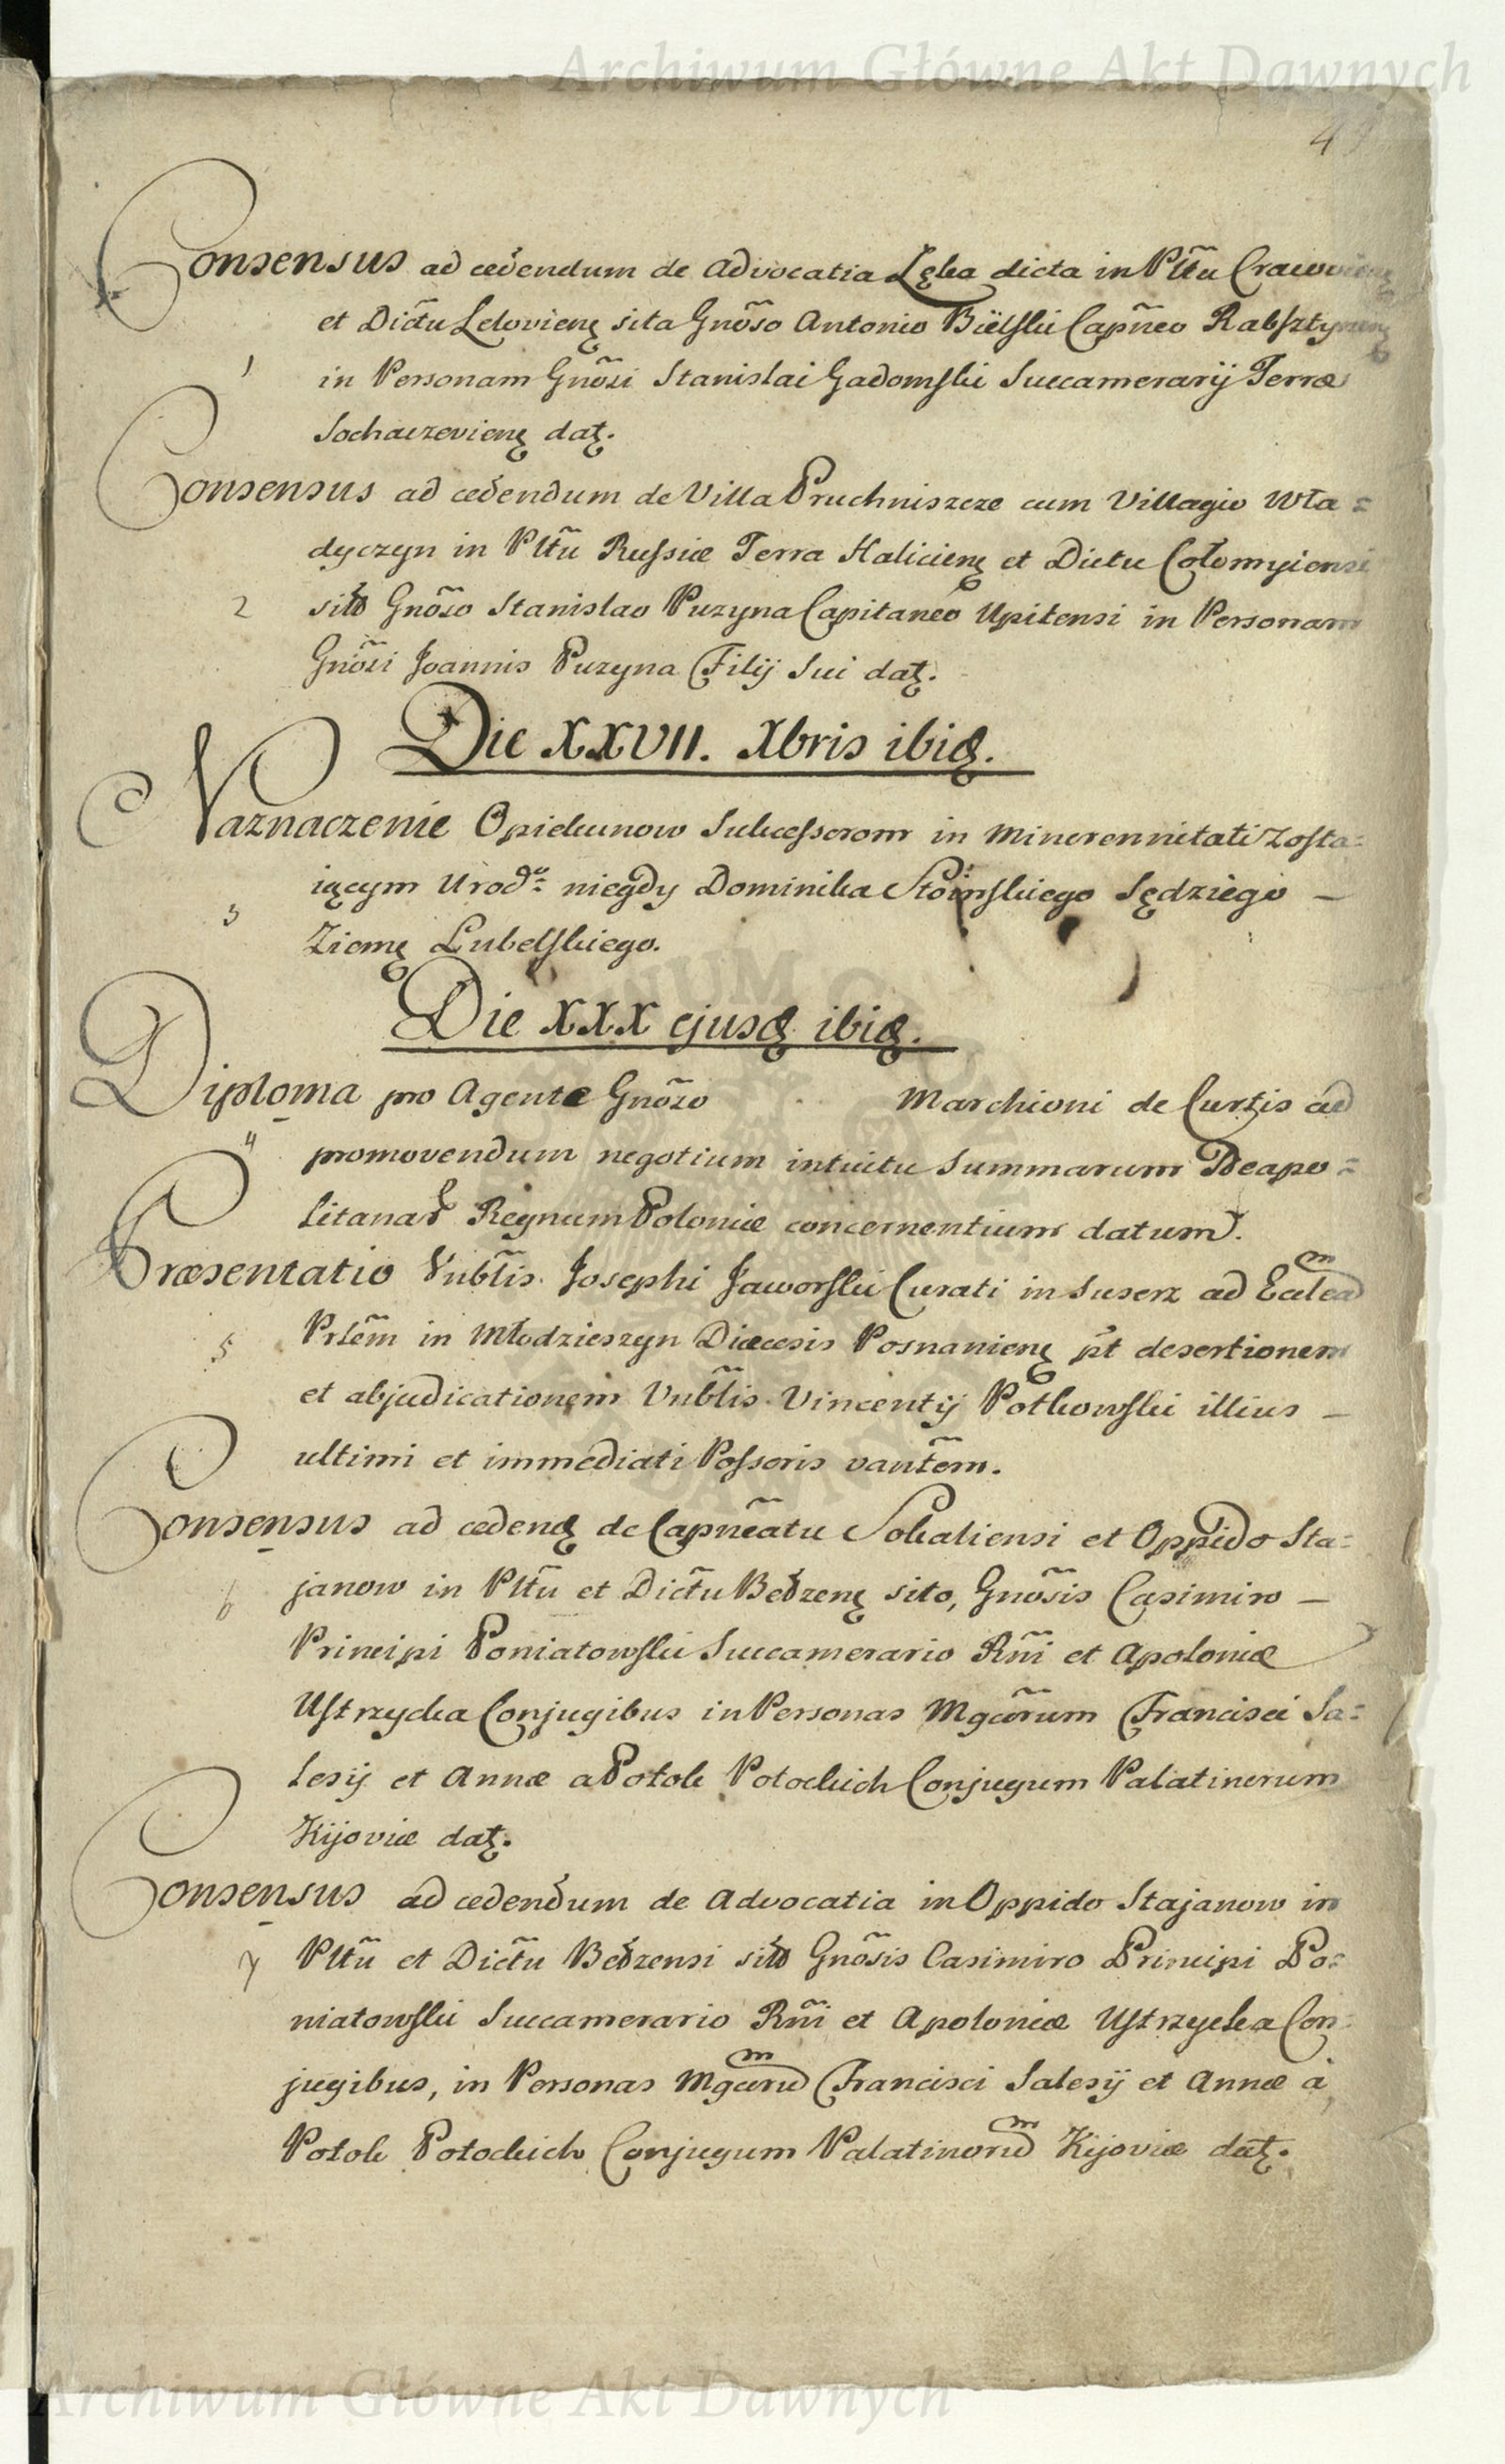 Archiwum Główne Akt Dawnych
4
Consensus ad cedendum de Advocatia Lęka dicta in Pttũ Cracovienę
et Dictũ Lelovienę sita Gnõso Antonio Bielski Capñeo Rabsztynenę
1 in Personam Gnõsi Stanislai Gadomski Succamerarij Terræ
Sochaczevienę datę.
Consensus ad cedendum de Villa Pruchniszcze cum Villagio Wła=
dyczyn in Pttũ Russiæ Terra Halicienę et Dictu Cołomyiensi
2 sito Gnõso Stanislao Puzyna Capitaneo Upitensi in Personam
Gnõsi Joannis Puzyna Filij Sui datę.
Die XXVII. Xbris ibid.
Naznaczenie Opiekunow Sukcessorom in minorennitati zosta=
iącym Urodo niegdy Dominika Stoinskiego Sędziego –
3 Ziemę Lubelskiego.
Die XXX ejusd ibid.
Diploma pro Agente Gnõso Marchioni de Curtis ad
4 promovendum negotium intuitu Summarum Neapo=
litanar Regnum Poloniæ concernentium datum.
Præsentatio Vnblis Josephi Jaworski Curati in Suserz ad Eccleam
5 Prlem in Młodzieszyn Diæcesis Posnanienę pt desertionem
et abjudicationem Vnblis Vincentij Potkowski illius –
ultimi et immediati Possoris vantem.
Consensus ad cedend de Capneatu Sokaliensi et Oppido Sta=
6 janow in Pttũ et Dictũ Bełzenę sito, Gnõsis Casimiro –
Principi Poniatowski Succamerario Rñi et Apoloniæ
Ustrzycka Conjugibus in Personas Mgcorum Francisci Sa=
lesij et Annæ a Potok Potockich Conjugum Palatinorum
Kijoviæ datę.
Consensus ad cedendum de Advocatia in Oppido Stajanow in
7 Pttũ et Dictũ Bełzensi sito Gnõsis Casimiro Principi Po=
niatowski Succamerario Rñi et Apoloniæ Ustrzycka Con=
jugibus, in Personas Mgcorum Francisci Salesij et Annæ à
Potok Potockich Conjugum Palatinorum Kijoviæ datę.
Archiwum Główne Akt Dawnych